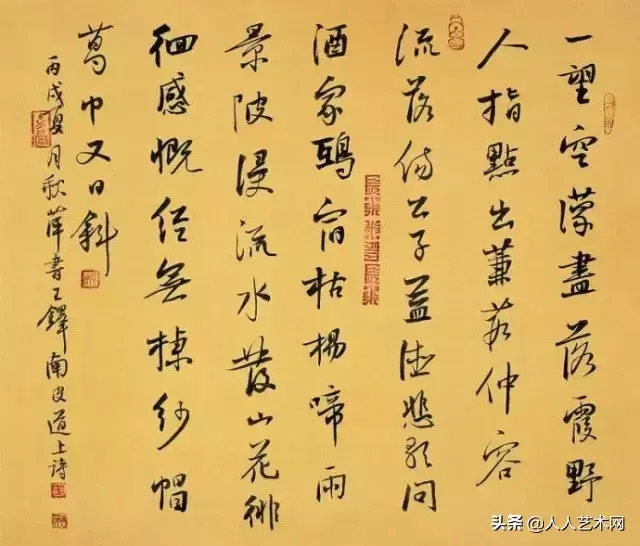 一望空濛盡落霞野
人指點出蒹葭仲容
流落傷公子德悲歌問
酒家鴟宿枯楊啼雨
景陂浸流水發山花徘
徊感慨無紗帽
葛巾又日斜
丙戌夏月秋萍書王鐸南皮道上詩
头条 @人人艺术网